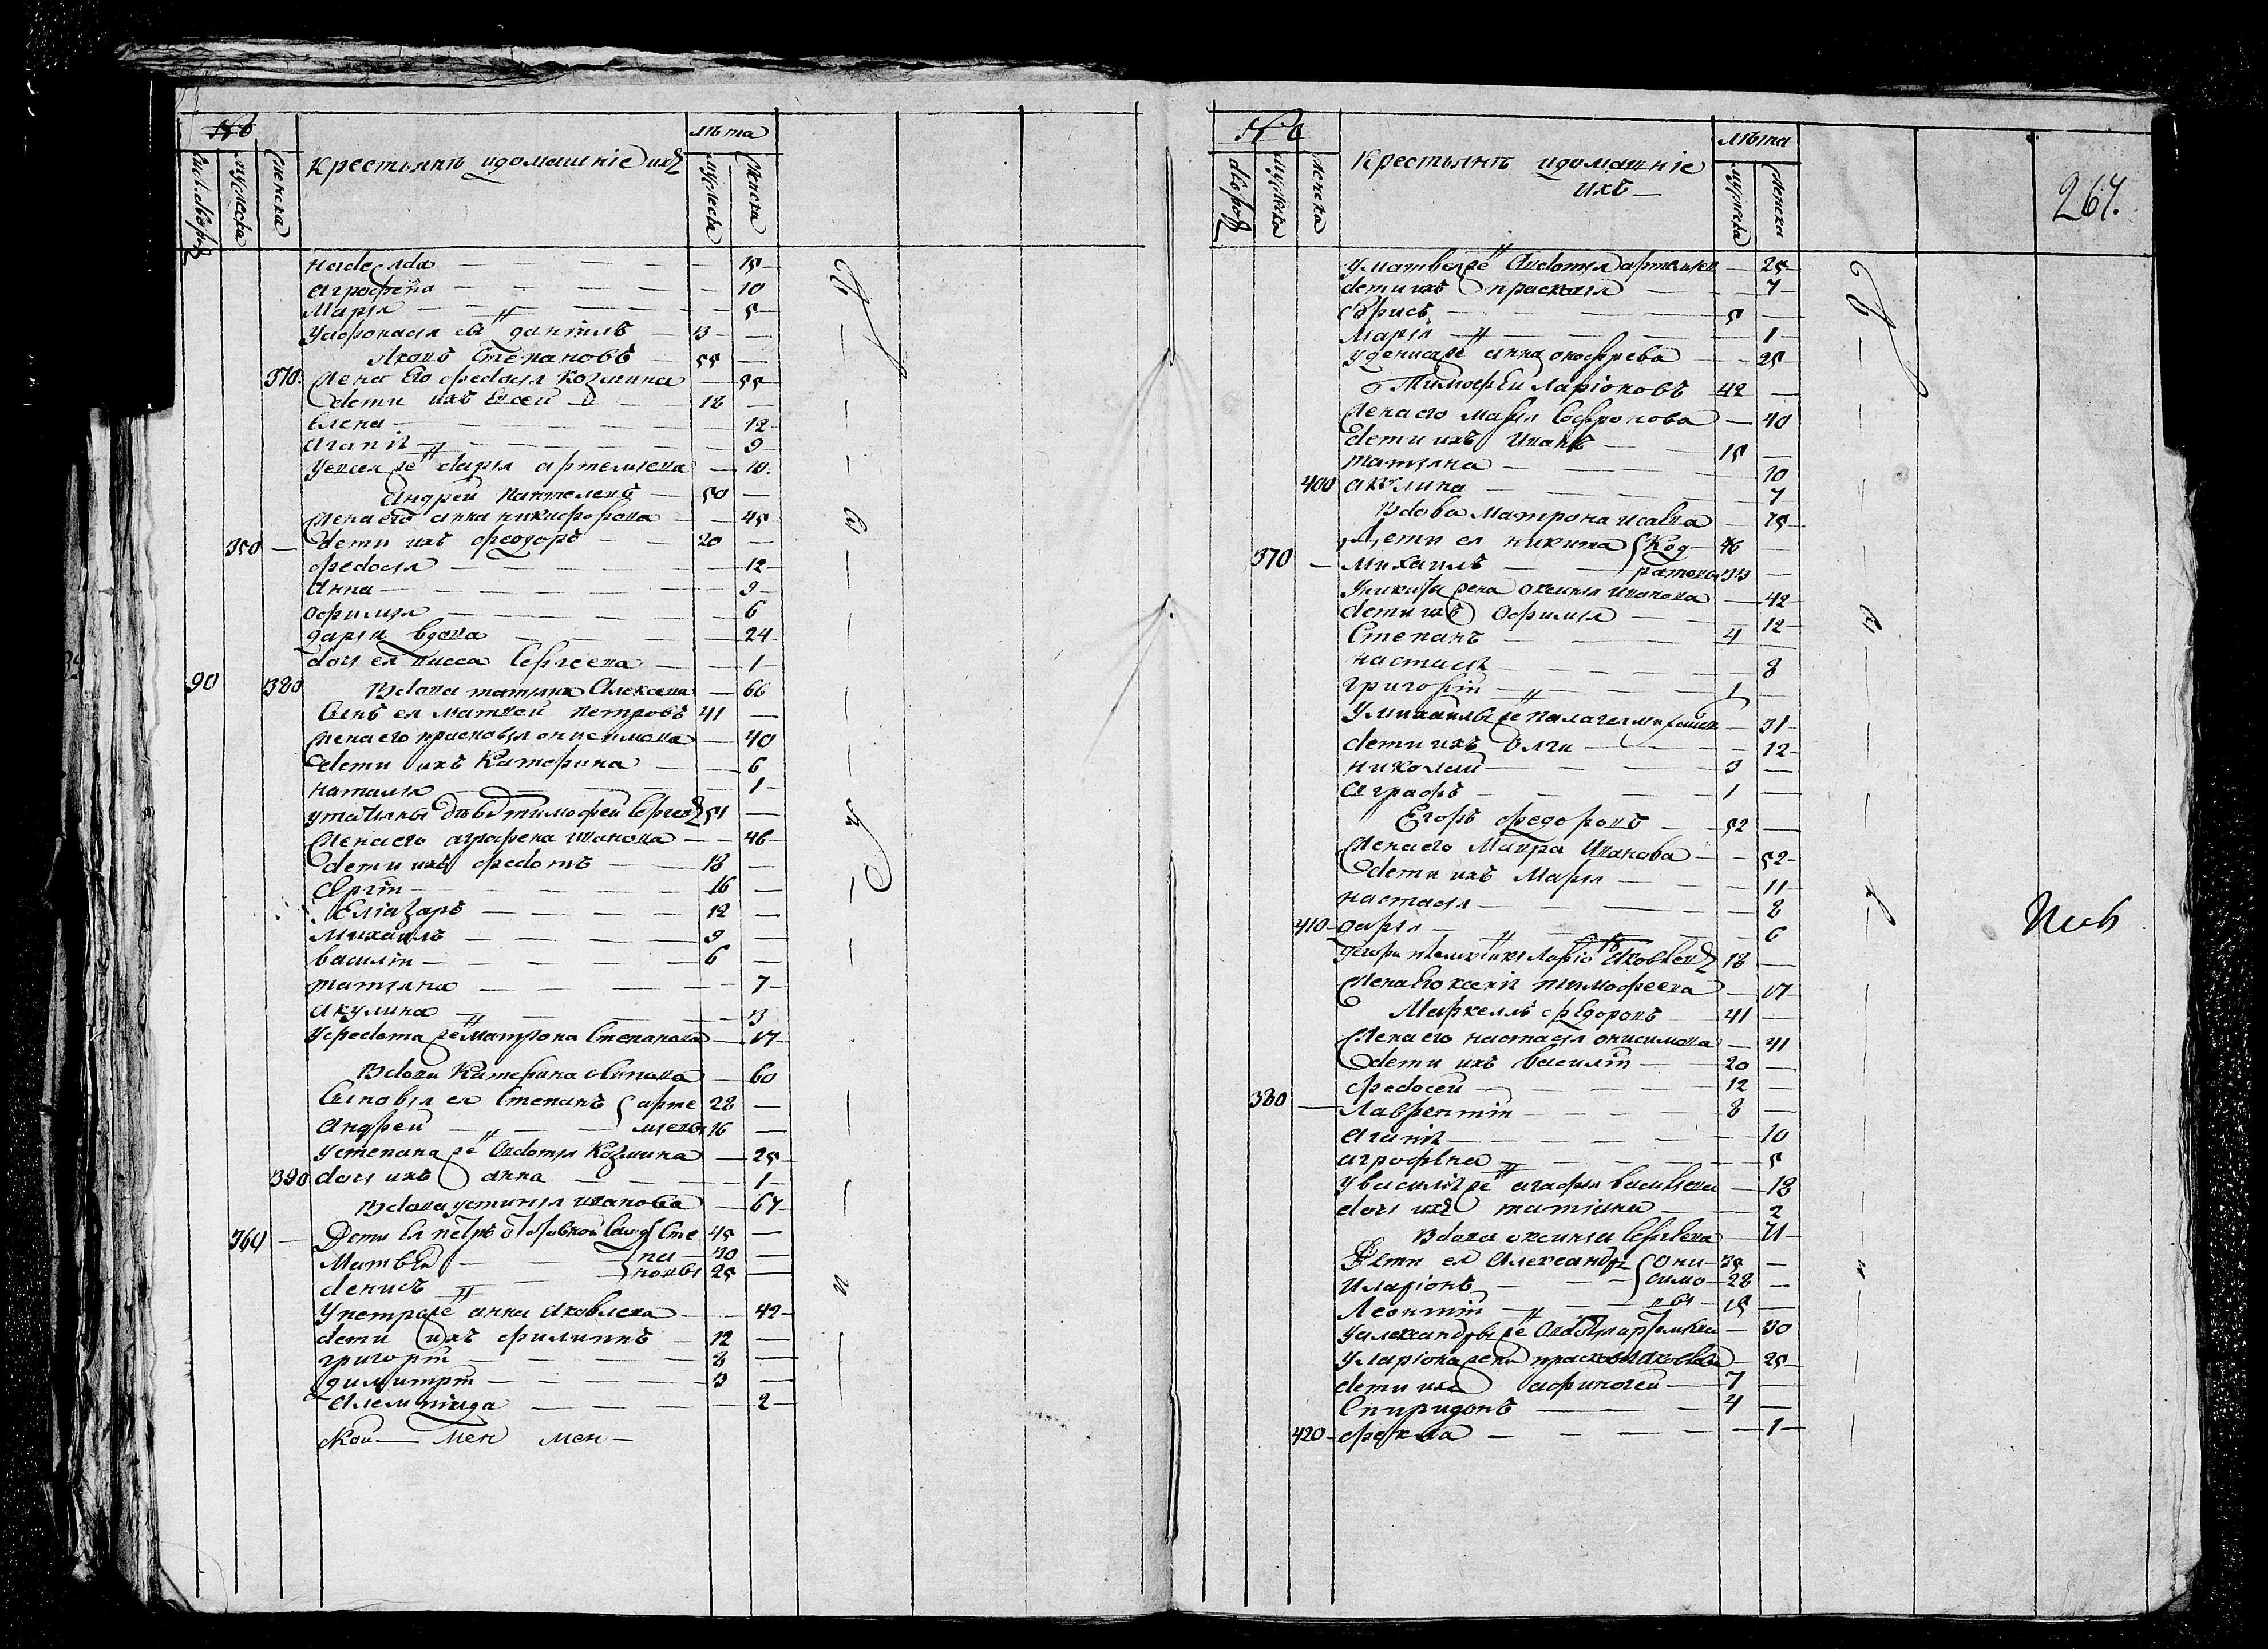 №
Крестьянъ идомашніе ихъ
лѣта
числ. дворъ
мужеска
женска
мужеска
женска
надежда — 15
аграфена — 10
Марья — 5
Уафонасья сынъ данилъ — 3
Яковъ Степановъ — 55
370 жена Его федосья козмина — 55
дети ихъ Евсей — 18
Елена — 12
агапія — 9
Уевсея же дарья артемьева — 10
Андрей Пантелеевъ — 50
жена его анна никифорова — 45
350 — дети ихъ феодоръ — 20
федосья — 12
Анна — 9
офимья — 6
дарья вдова — 24
дочь ея Сергеева — 1
90 380 Вдова татьяна Алексеева — 66
Сынъ ея матвей петровъ 41
жена его прасковья онисимова — 40
дети ихъ Катерина — 6
наталья — 1
утатьяны тимофей Сергеевъ 51
жена его аграфена иванова — 46
дети ихъ федотъ — 18
Сергій — 16
Елиазаръ — 12
Михаилъ — 9
василій — 6
татьяна — 7
акулина — 3
Уфедота же Матрона Степанова — 17
Вдова Катерина — 60
Сыновья ея Степанъ арте 28
Андрей — мьевы 16
Устепана же Авдотья Козмина — 25
390 дочь ихъ анна — 1
Вдова устинья иванова — 67
360 — Дети Ея петръ Сте 45
Матвей — па 30
денисъ — новы 25
Упетра же анна Яковлева — 42
дети ихъ филиппъ — 12
григорій — 8
димитрій — 3
Алемпіада — 2
ской — мен мен —
№
Крестьянъ идомашніе
ихъ —
лѣта
дворовъ
мужеска
женска
мужеска
женска
267.
Уматвея же Авдотья артемьева — 25
дети ихъ прасковья — 7
борисъ — 5
Марія — 1
Удениса же анна онофрева — 25
Тимофей Ларіоновъ 42
жена его марья Софронова — 40
дети ихъ Иванъ — 15
татьяна — 10
400 акулина — 7
Вдова Матрона исаева — 75
Дети ея никита Код 46
370 — Михаилъ — ратовы 33
Уникиты жена оксинья иванова — 42
дети ихъ офимья — 12
Степанъ — 4
настасья — 8
григорій — 1
Умихаилы же палагея — 31
дети ихъ Олга — 12
николай — 3
— 1
Егоръ федоровъ — 52
жена его Мавра Иванова — 52
дети ихъ Марья — 11
настасья — 8
410 дарья — 6
Яковлевъ 18
тимофеева — 17
Маркеллъ федоровъ — 41
жена его настасья онисимова — 41
дети ихъ василій — 20
федосей — 12
380 — Лаврентій — 8
агапія — 10
аграфена — 5
Увасилія же агафья василева — 18
дочь ихъ татьяна — 2
Вдова оксинья Сергеева 71
Дети ея Александръ Они 35
Иларіонъ — симо 28
Леонтій — вы — 15
Уалександры же — 30
Уларіона жена прасковья Яковлева — 25
дети ихъ афиногей — 7
Спиридонъ — 4
420 фекла — 1